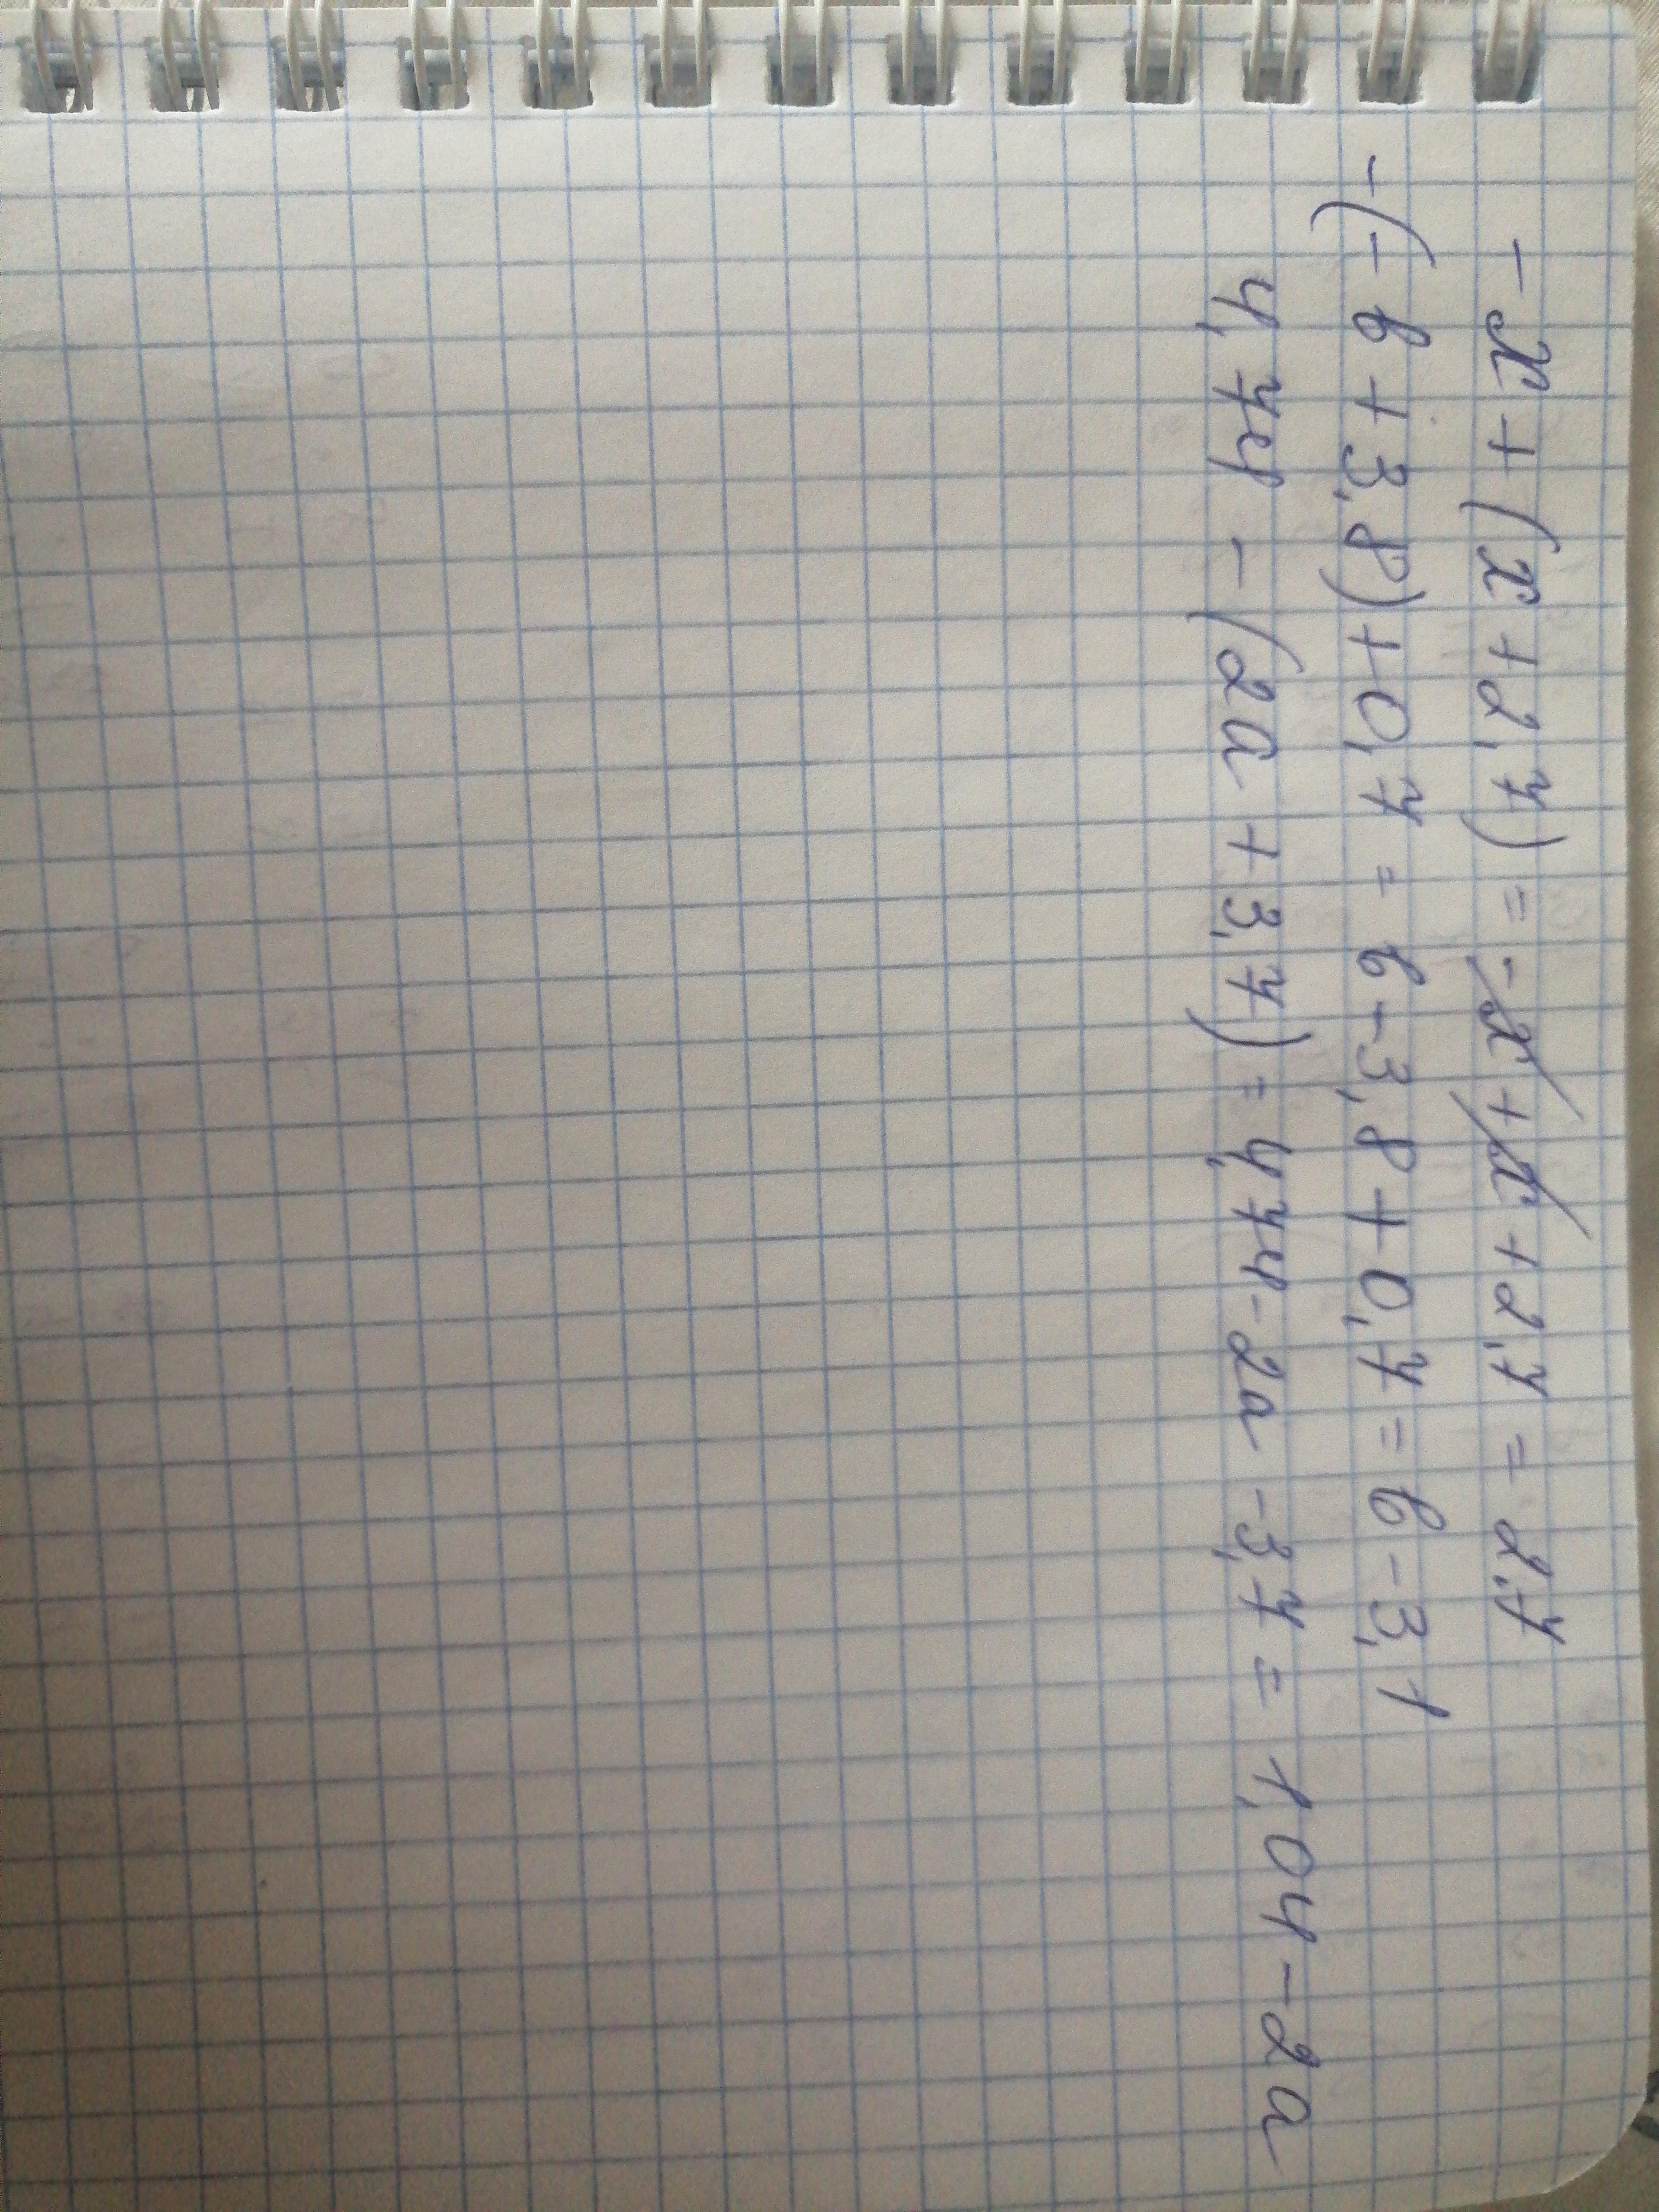 -x + (x + 2,7) = -x + x + 2,7 = 2,7
-(-в + 3,8) + 0,7 = в - 3,8 + 0,7 = в - 3,1
4,74 - (2a + 3,7) = 4,74 - 2a - 3,7 = 1,04 - 2a